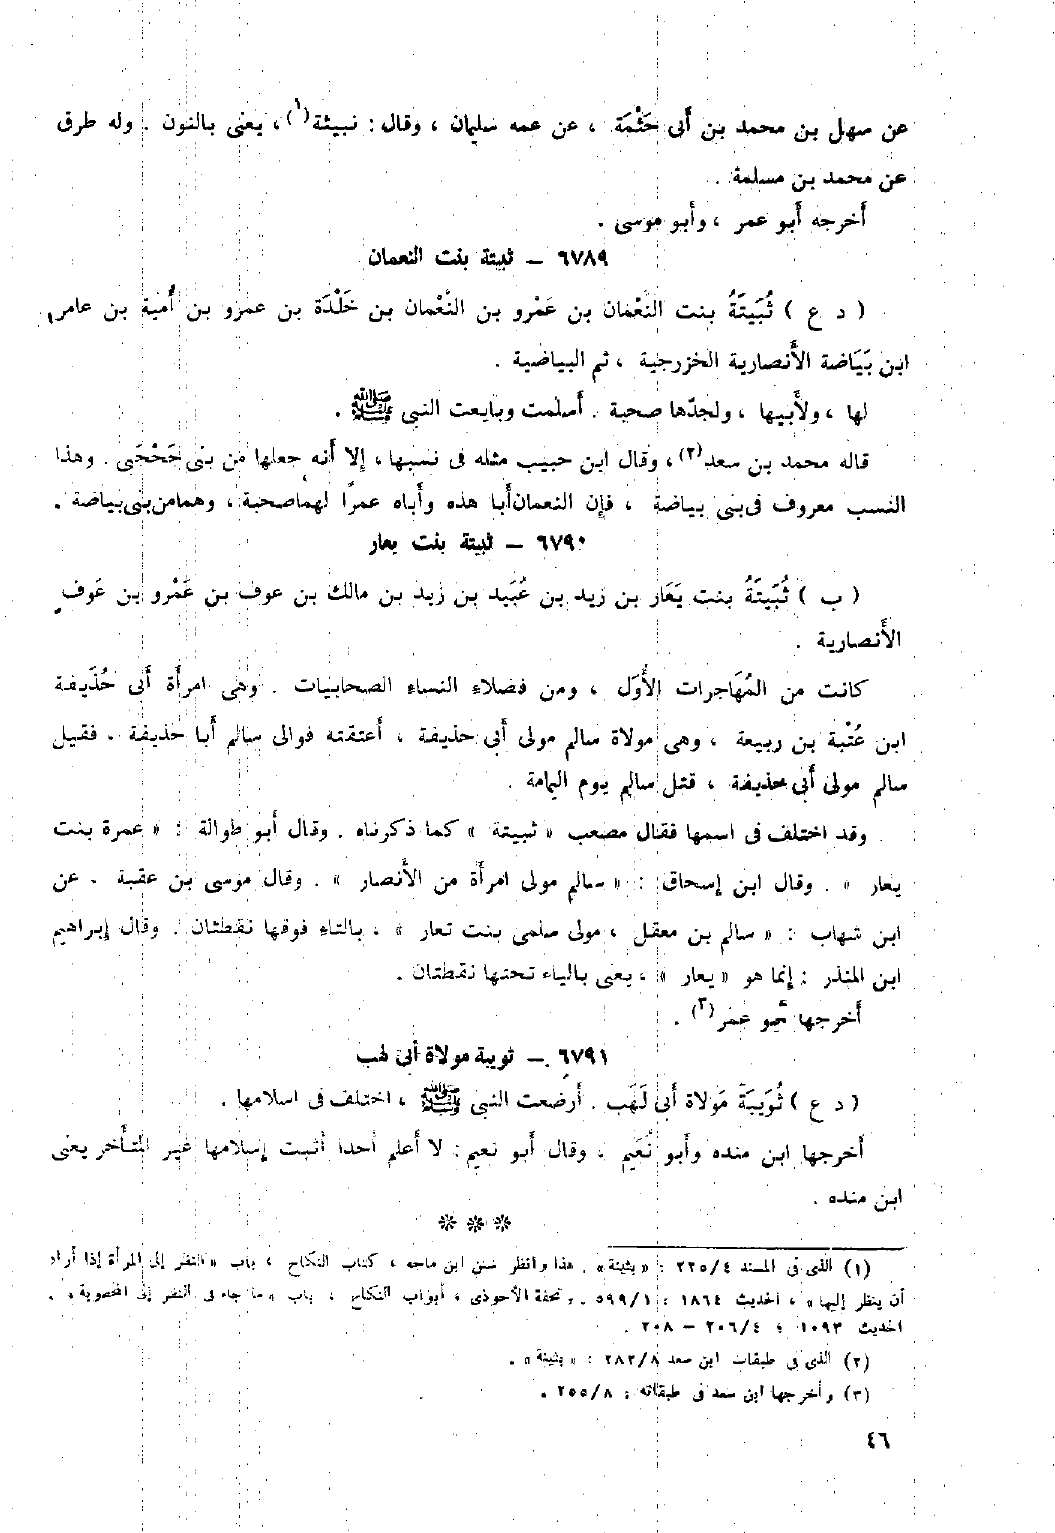 عن سهل بن محمد بن أبى حَثْمَة ، عن عمه سليمان ، وقال : نبيثة(١)، يعنى بالنون . وله طرق
عن محمد بن مسلمة .
أخرجه أبو عمر ، وأبو موسى .
٦٧٨٩ – ثبيتة بنت النعمان
( د ع ) ثُبَيتَةُ بنت النعْمَان بن عَمْرو بن النُّعْمان بن خَلْدَة بن عمرو بن أُمية بن عامر
ابن بَيَاضة الأَنصارية الخزرجية ، ثم البياضية .
لها ، ولأَبيها ، ولجدّها صحبة . أَسلمت وبايعت النبى ﷺ .
قاله محمد بن سعد(٢)، وقال ابن حبيب مثله فى نسبها ، إلا أنه جعلها من بنى جَحْجَبى . وهذا
النسب معروف فى بنى بياضة ، فإن النعمان أَبا هذه وأَباه عمرًا لهما صحبة ، وهما من بنى بياضة .
٦٧٩٠ – ثبيتة بنت يعار
( ب ) ثُبَيتَةُ بنت يَعَار بن زيد بن عُبَيد بن زيد بن مالك بن عوف بن عَمْرو بن عَوف
الأَنصارية .
كانت من المُهَاجرات الأُوَل ، ومن فضلاء النساء الصحابيات . وهى امرأَة أَبى حُذَيفة
ابن عُتْبة بن ربيعة ، وهى مولاة سالم مولى أَبى حذيفة ، أَعتقته فوالى سالم أَبا حذيفة . فقيل
سالم مولى أَبى حذيفة ، قتل سالم يوم اليمامة .
وقد اختلف فى اسمها فقال مصعب « ثبيتة » كما ذكرناه . وقال أَبو طوالة : « عمرة بنت
يعار » . وقال ابن إسحاق : « سالم مولى امرأَة من الأَنصار » . وقال موسى بن عقبة . عن
ابن شهاب : « سالم بن معقل ، مولى سلمى بنت تعار » ، بالتاءِ فوقها نقطتان . وقال إبراهيم
ابن المنذر : إنما هو « يعار » ، يعنى بالياء تحتها نقطتان .
أَخرجها أبو عمر(٣) .
٦٧٩١ – ثويبة مولاة أبى لهب
( د ع ) ثُوَيبَة مَولاة أَبى لَهَب . أَرضعت النبى ﷺ ، اختلف فى اسلامها .
أَخرجها ابن منده وأَبو نُعَيم ، وقال أَبو نعيم : لا أَعلم أَحدا أَثبت إسلامها غير المتأَخر يعنى
ابن منده .
***
(١) الذى فى المسند ٢٢٥/٤ : « بثينة » . هذا وانظر سنن ابن ماجه ، كتاب النكاح ، باب « النظر إلى المرأة إذا أراد
أن ينظر إليها » ، الحديث ١٨٦٤ : ٥٩٩/١ . وتحفة الأحوذى ، أبواب النكاح ، باب « ما جاء فى النظر إلى المخطوبة » .
الحديث ١٠٩٣ : ٢٠٦/٤ – ٢٠٨ .
(٢) الذى فى طبقات ابن سعد ٢٨٣/٨ : « بثينة » .
(٣) وأخرجها ابن سعد فى طبقاته : ٢٥٥/٨ .
٤٦